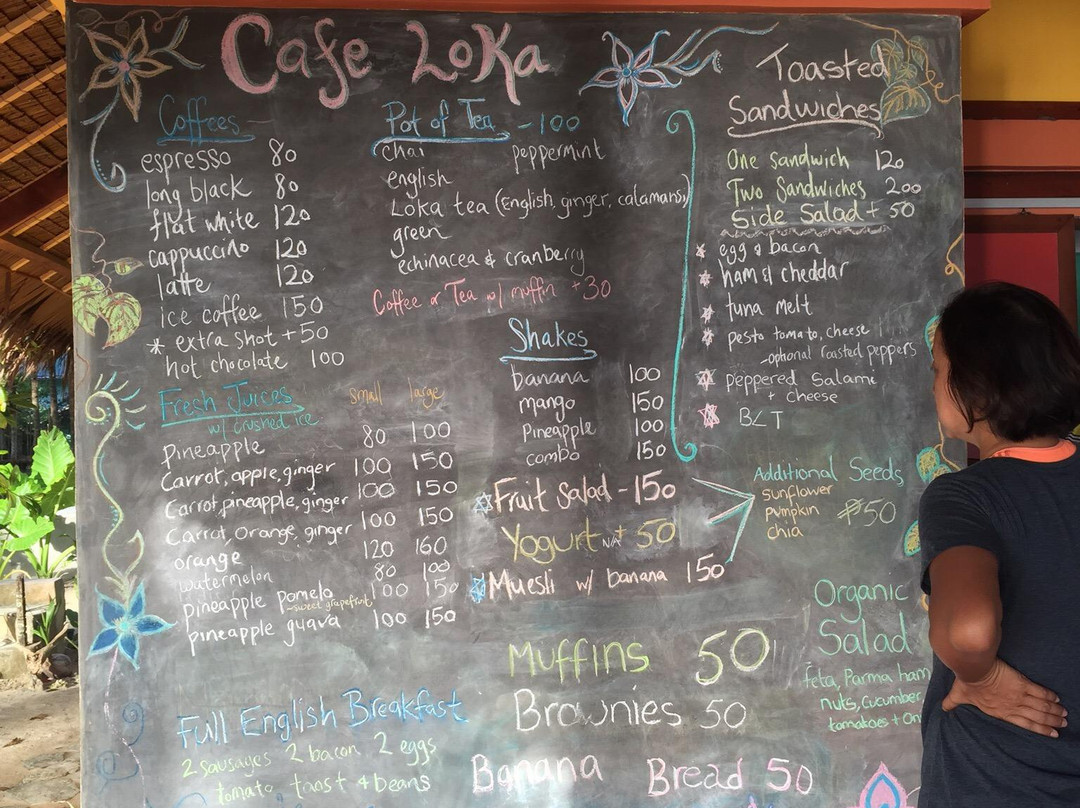 Cafe Loka
Coffees
espresso 80
long black 80
flat white 120
cappuccino 120
latte 120
ice coffee 150
* extra shot + 50
hot chocolate 100
Fresh Juices small large
w/ crushed ice
Pineapple 80 100
Carrot, apple, ginger 100 150
Carrot, pineapple, ginger 100 150
Carrot, Orange, ginger 100 150
orange 120 160
watermelon 80 100
pineapple pomelo 100 150
~sweet grapefruit
pineapple guava 100 150
Full English Breakfast
2 sausages 2 bacon 2 eggs
tomato toast & beans
Pot of Tea - 100
chai peppermint
english
Loka tea (English, ginger, calamansi)
green
echinacea & cranberry
Coffee or Tea w/ muffin +30
Shakes
banana 100
mango 150
Pineapple 100
combo 150
Fruit Salad - 150
Yogurt N/A + 50
Muesli w/ banana 150
Muffins 50
Brownies 50
Banana Bread 50
Toasted
Sandwiches
One sandwich 120
Two Sandwiches 200
Side Salad + 50
* egg & bacon
* ham & cheddar
* tuna melt
* pesto tomato, cheese
- optional roasted peppers
* peppered Salami
+ cheese
* BLT
Additional Seeds
sunflower
pumpkin ₱50
chia
Organic
Salad
feta, Parma ham
nuts, cucumber
tomatoes + On